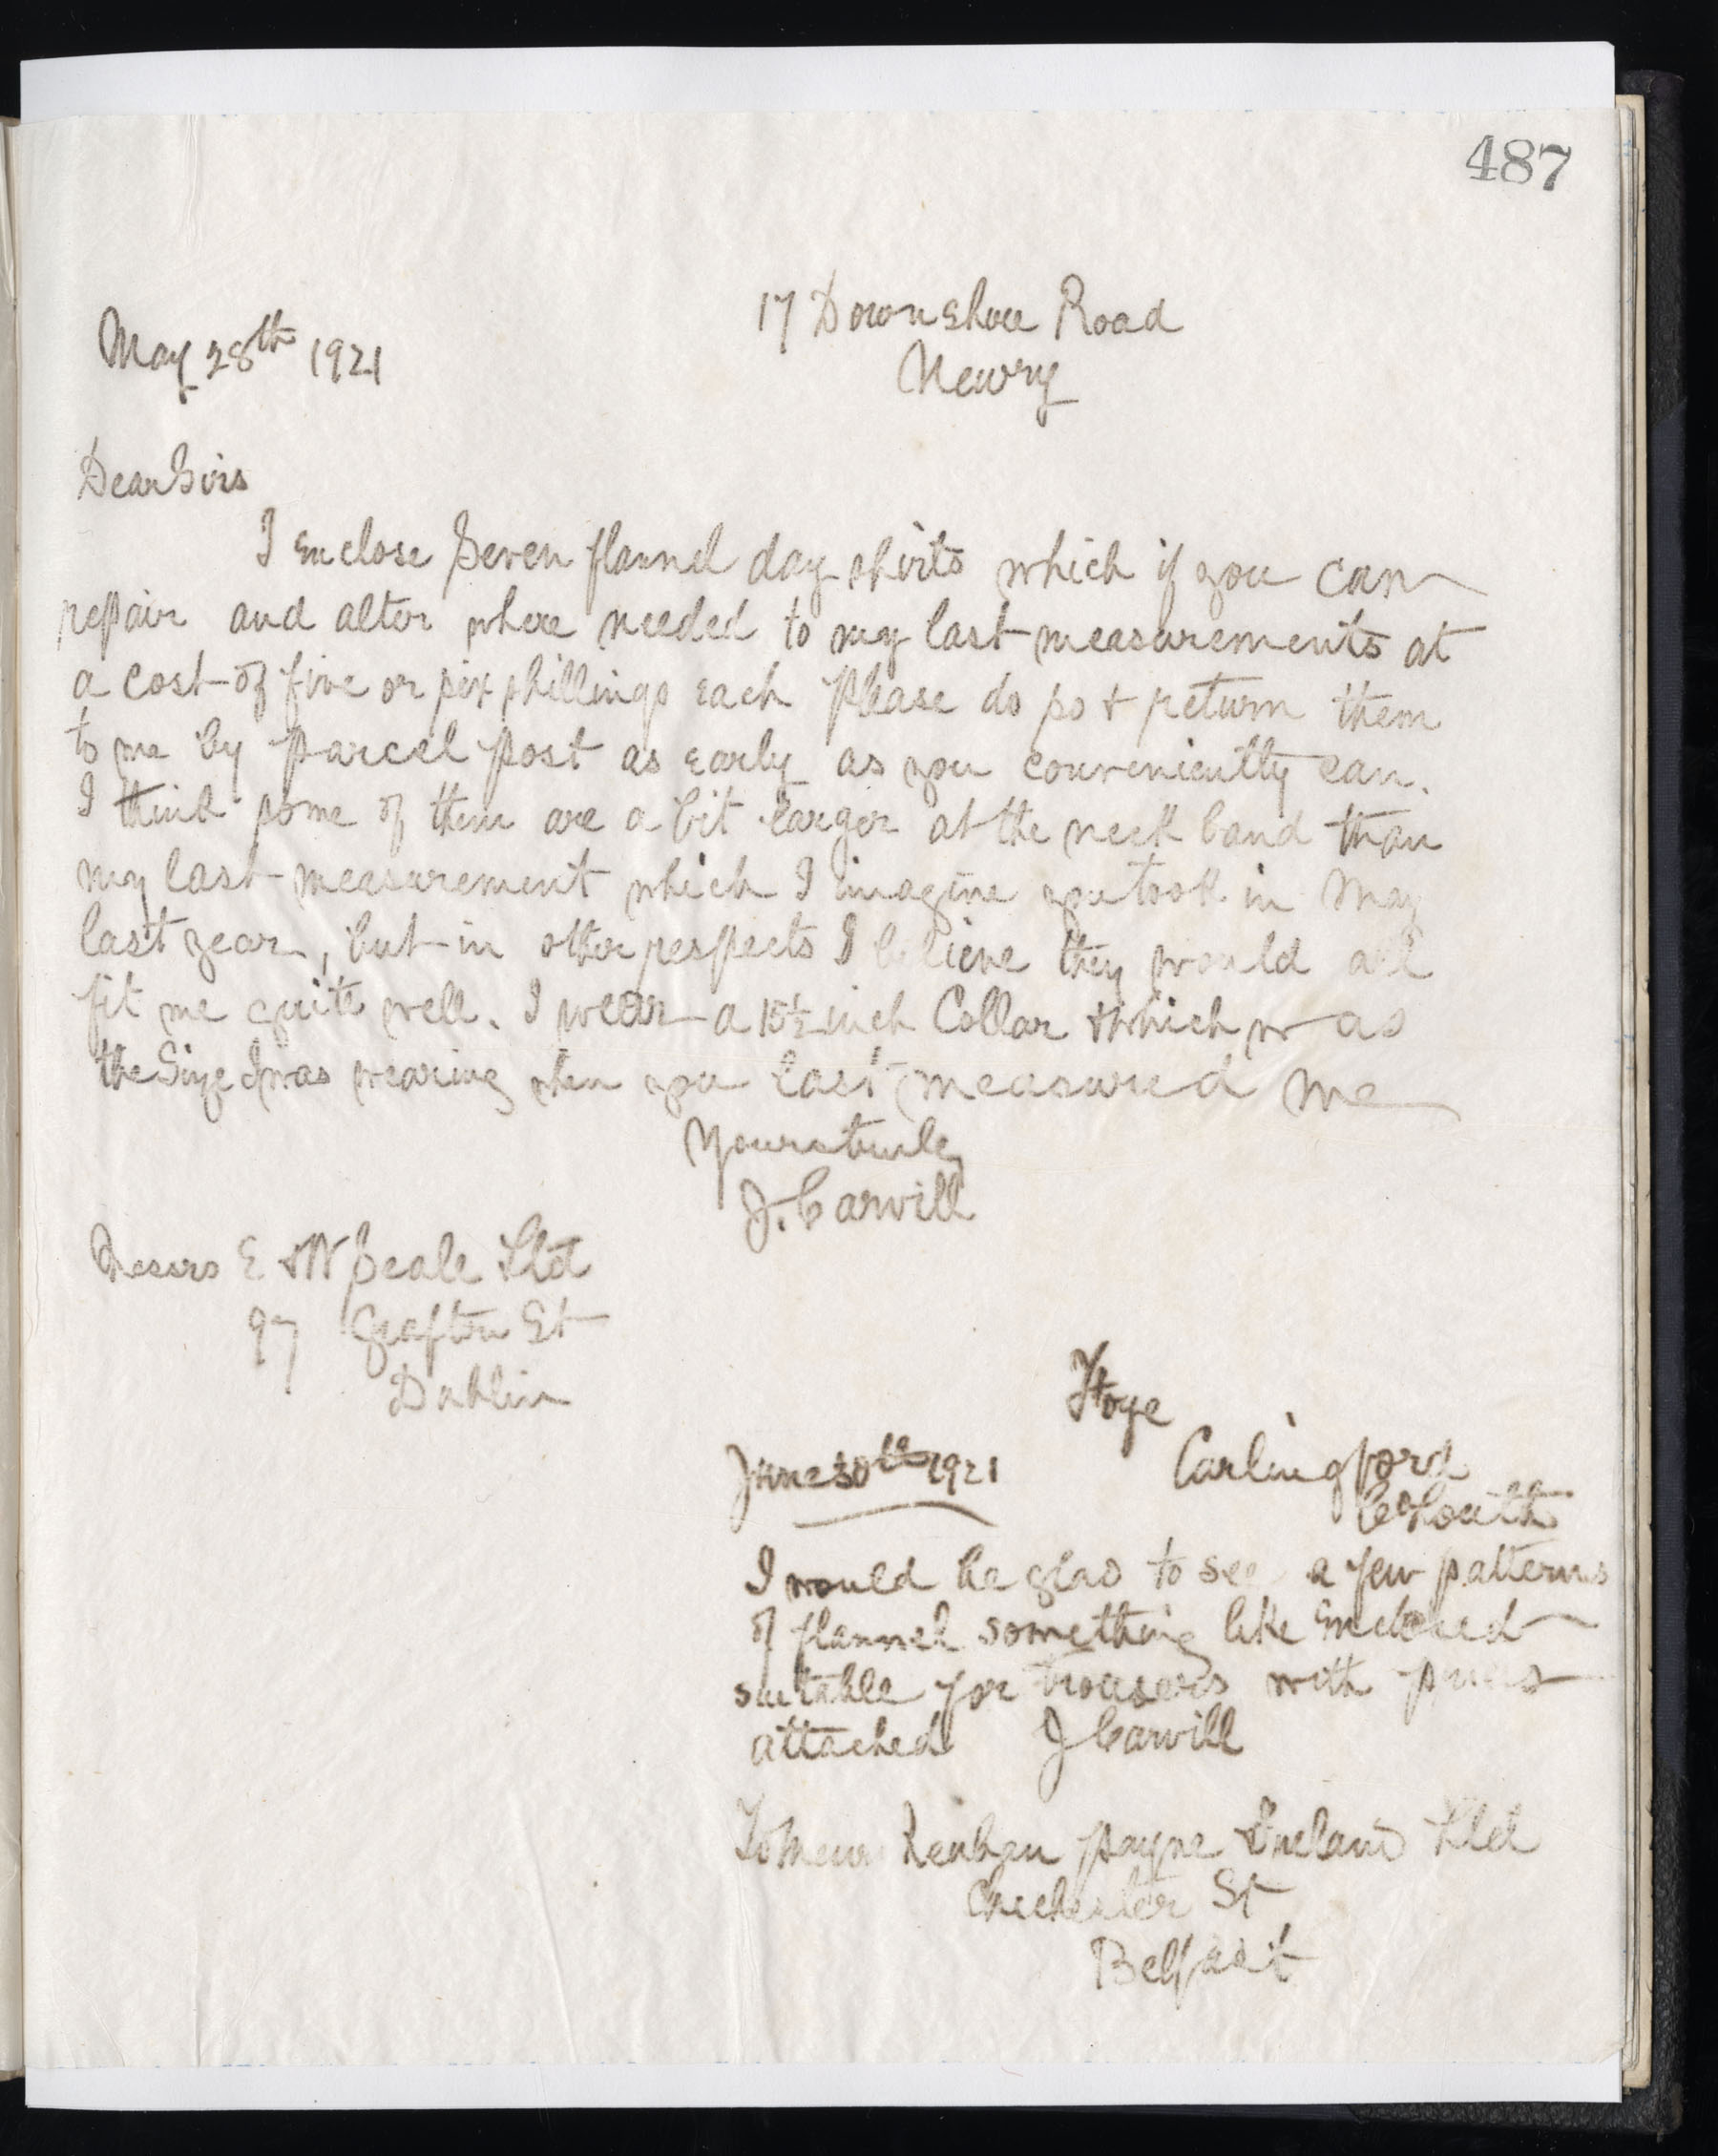 487
17 Downshire Road
May 28th 1921
Newry
Dear Sirs
I enclose seven flannel day shirts which if you can
repair and alter where needed to my last measurements at
a cost of five or six shillings each Please do so & return them
to me by parcel post as early as you conveniently can.
I think some of them are a bit larger at the neck band than
my last measurement which I imagine you took in May
last year, but in other respects I believe they would all
fit me quite well. I wear a 15½ inch Collar & which was
the Size I was wearing when you last measured me
Yours truly
J. Carvill
Messrs E & W Seale Ltd
97 Grafton St
Dublin
June 30th 1921
Carlingford
Co Louth
I would be glad to see a few patterns
of flannel something like enclosed
suitable for trousers with prices
attached J Carvill
To Messrs Payne Ireland Ltd
Chichester St
Belfast